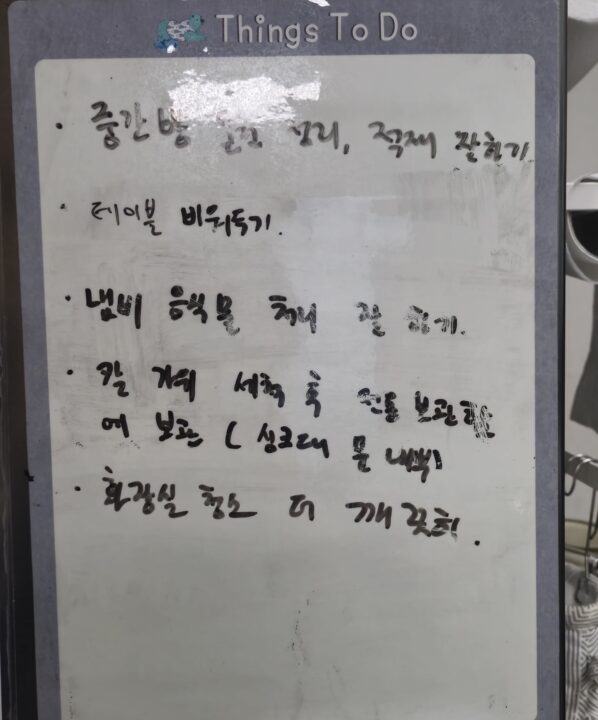 Things To Do
· 중간방 정리, 적재 잘하기
· 테이블 비워두기.
· 냄비 음식물 처리 잘 하기.
· 칼 가위 세척 후 전용 보관함
에 보관 ( 싱크대 문 내벽)
· 화장실 청소 더 깨끗히.